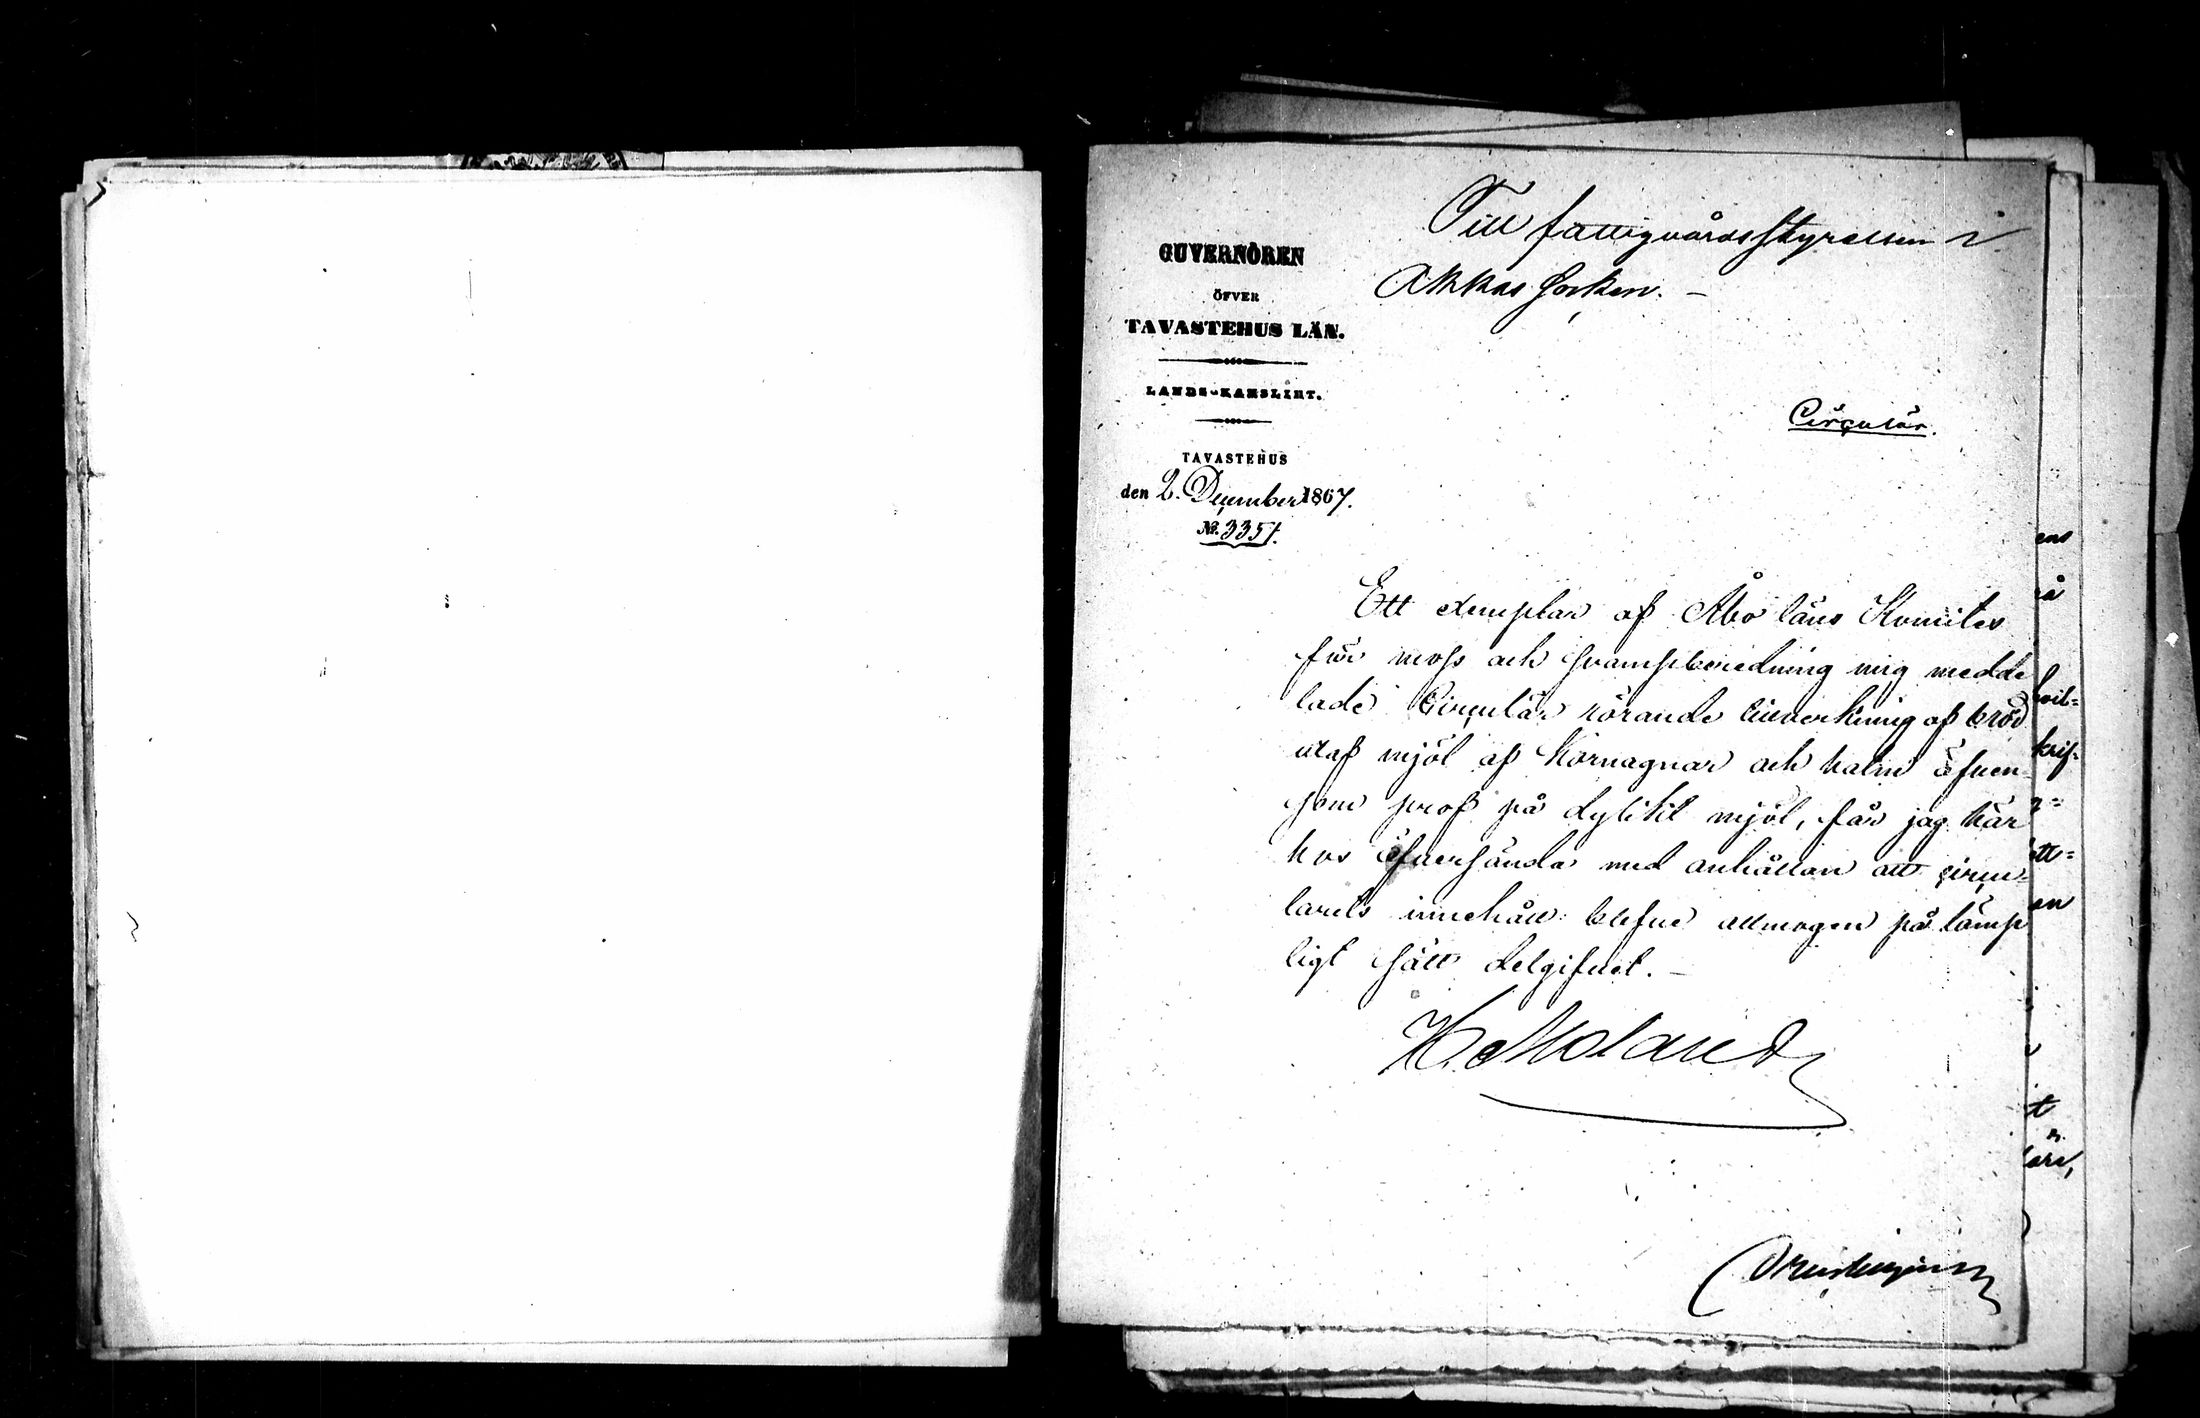 Till fattigvårdsstyrelsen i
Akkas socken. –
GUVERNÖREN
ÖFVER
TAVASTEHUS LÄN.
LANDS-KANSLIET.
TAVASTEHUS
den 2. December 1867.
No. 3351.
Circulär.
Ett exemplar af Åbo läns Komités
för moss och svampberedning mig medde
lade Circulär rörande tillverkning af bröd
utaf mjöl af kornagnar och halm äfven
som prof på dylikt mjöl, får jag här
hos öfversända med anhållan att circu-
larets innehåll blefve allmogen på lämp
ligt sätt delgifvet. –
H. Molander
ens
å
hvil-
krif-
tt-
en
t